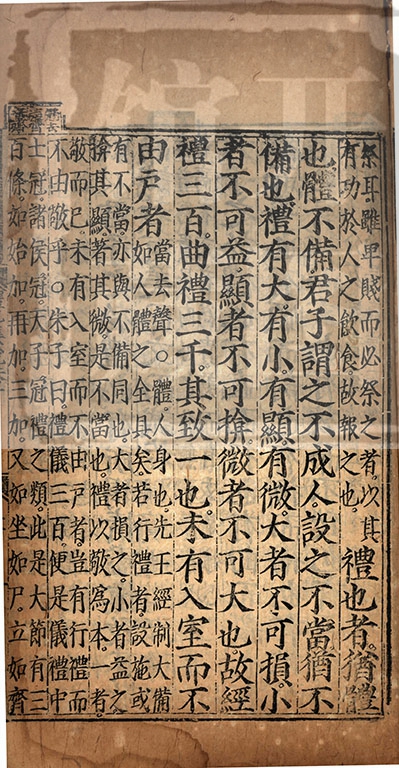 祭耳雖卑賤而必祭之者以其
有功於人之飲食故報之也
禮也者猶體
也體不備君子謂之不成人設之不當猶不
備也禮有大有小有顯有微大者不可損小
者不可益顯者不可揜微者不可大也故經
禮三百曲禮三千其致一也未有入室而不
由戶者
當去聲○體人身也先王經制大備
如人體之全具矣若行禮者設施或
有不當亦與不備同也大者損之小者益之
揜其顯著其微是不當也禮以敬爲本一者
敬而已未有入室而不由戶者豈有行禮而
不由敬乎○朱子曰禮儀三百便是儀禮中
士冠諸侯冠天子冠禮之類此是大節有三
百條如始加再加三加又如坐如尸立如齊